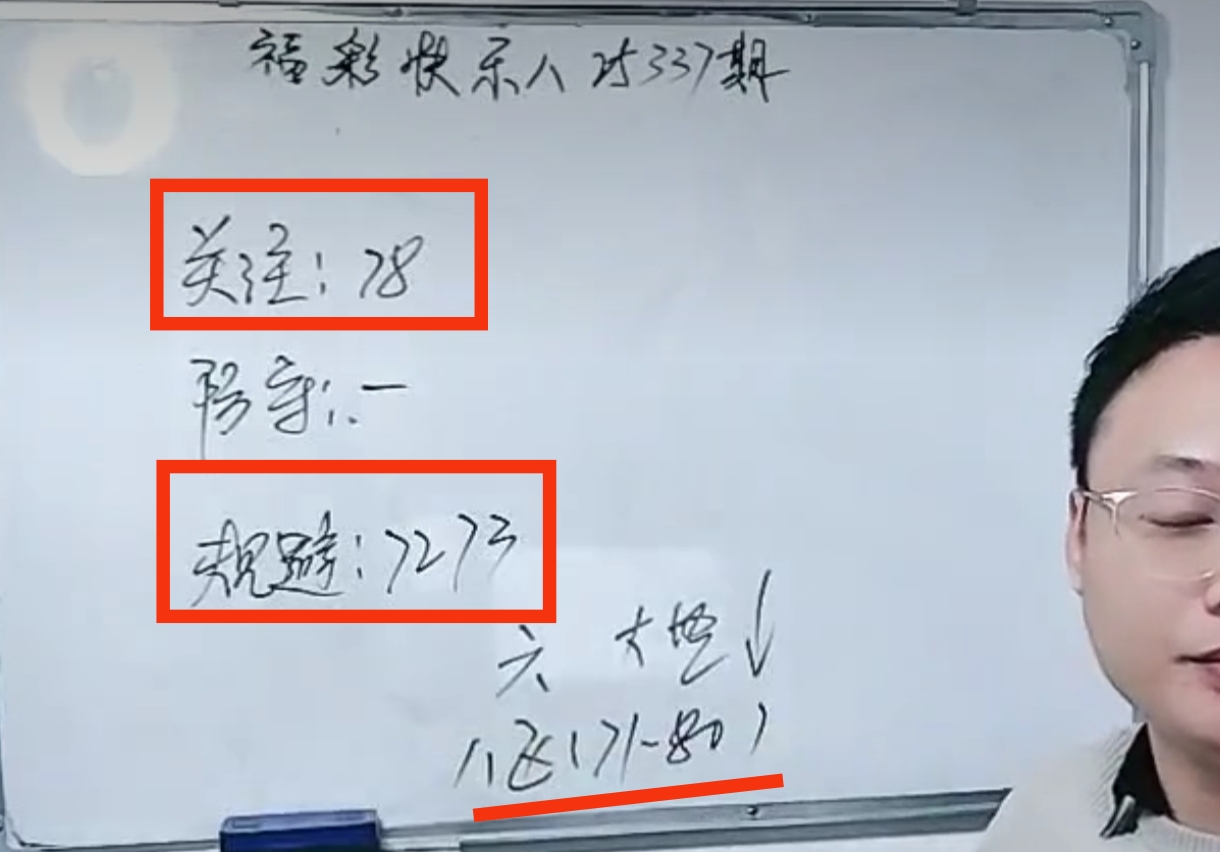 福彩快乐八25337期
关注：78
防守：一
规避：7273
六 大想↓
八区（71-80）